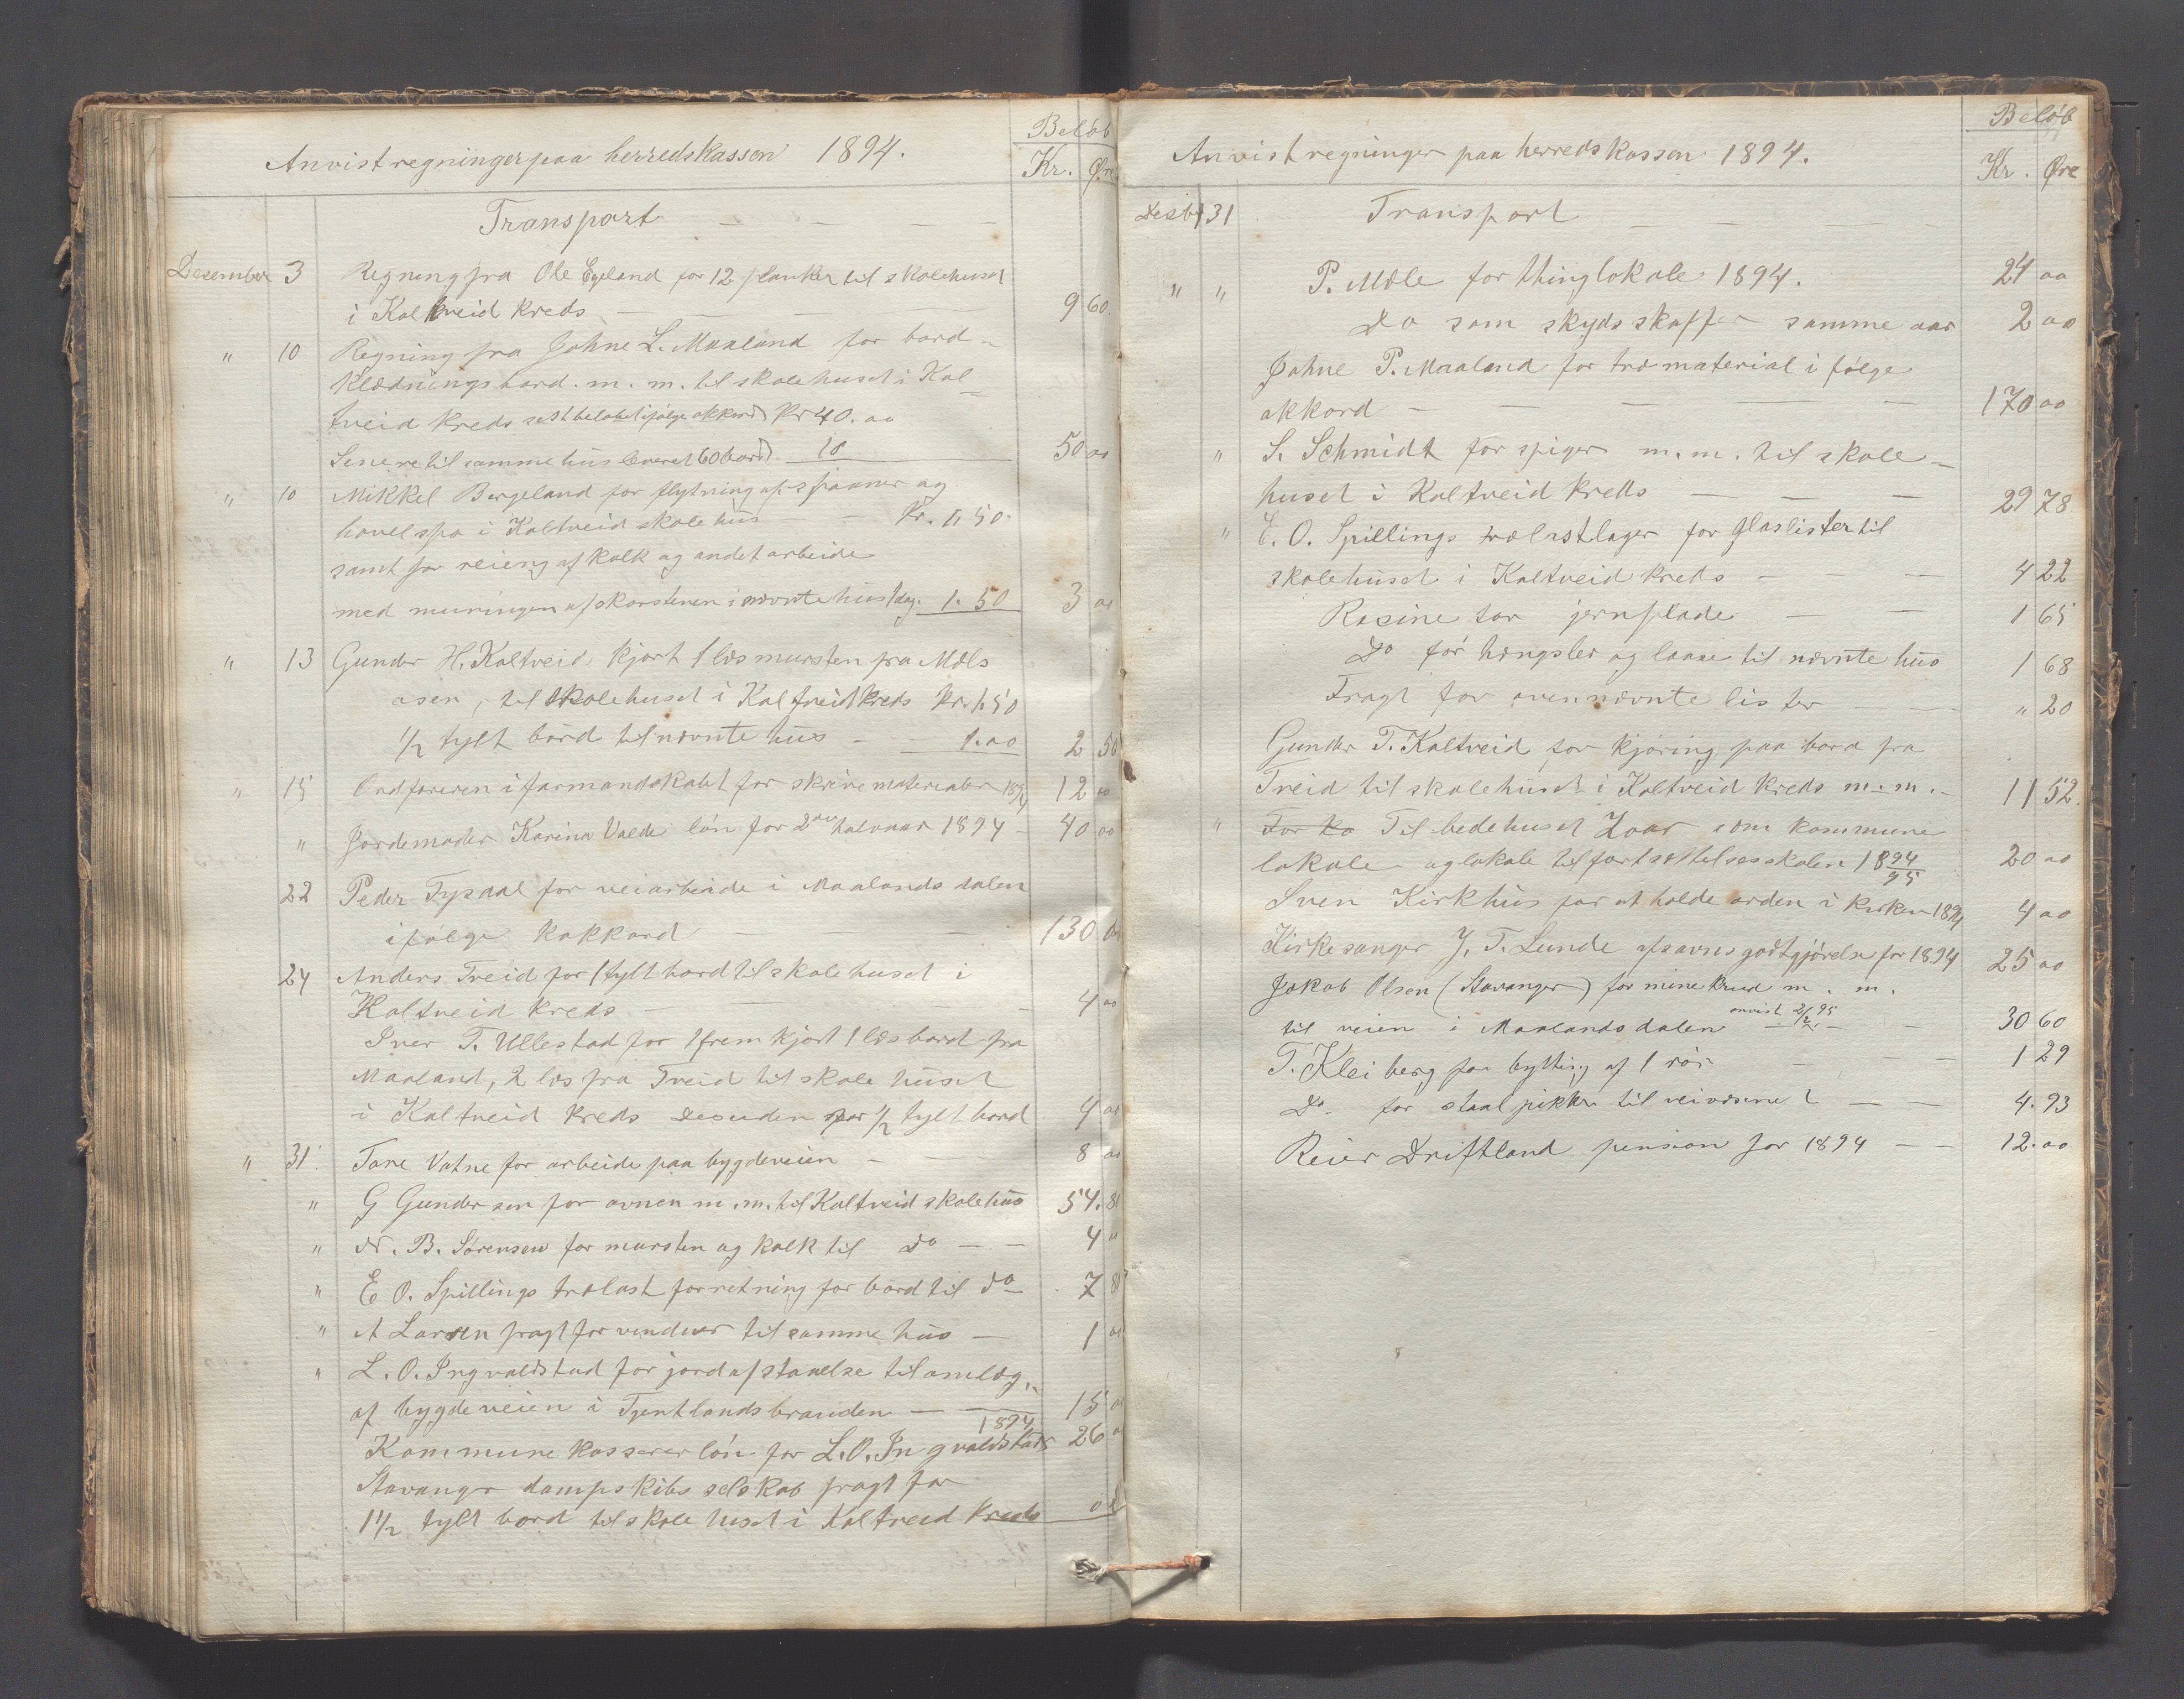 Beløb
Anvist regninger paa herredskassen 1894.
Kr. Øre
Transport — — — —
Desember 3 Regning fra Ole Egeland for 12 planker til skolehuset
i Kaltveid kreds — — — 9 60.
" 10 Regning fra Johne L. Maaland for bord-
klædningsbord. m. m. til skolehuset i Kal-
tveid kreds sæt beløbet ifølge akkord Kr 40. 00
Senere til samme hus leveret 60 bord 10 50 00
" 10 Mikkel Bergeland for flytning af spaaner og
høvelspo i Kaltveid skolehus — Kr. 1,50.
samt for reieng af kalk og andet arbeide
med muringen af skorstenen i nævnte hus 1 dag. 1. 50 3 00
" 13 Gunder H. Kaltveid, kjørt 1 læs mursten fra Mæls
osen, til skolehuset i Kaltveid kreds Kr. 1.50
1/2 tylt bord til nævnte hus — — 1.00 2 50
" 15 Ordføreren i formandskabet for skrivematerialer 1894 12 00
" Jordemoder Karina Valde løn for 2det halvaar 1894 — 40 00
22 Peder Tysdal for veiarbeide i Maalandsdalen
ifølge kakkord — — — 130 00
24 Anders Tveid for 1 tylt bord til skolehuset i
Kaltveid kreds — — — 4 00
Iver T. Ullestad for 1 frem kjørt 1 læs bord fra
Maaland, 2 læs fra Tveid til skole huset
i Kaltveid kreds desuden for 1/2 tylt bord 4 00
" 31. Tore Vatne for arbeide paa bygdeveien — — 8 00
" G Gundersen for ovnen m. m. til Kaltveid skolehus 54. 80
" N. B. Sørensen for mursten og kalk til Do — — 4 "
" E O. Spillings trælast forretning for bord til do 7 80
" A Larsen fragt for vinduer til samme hus — 1 00
" L. O. Ingvaldstad for jordafstaaelse til omlæg.,
af bygdeveien i Tjentlandsbranden — — 15 00
Kommune kasserer løn for L. O. Ingvaldstad 1894 26 00
Stavanger dampskibs selskab fragt for
1 1/2 tylt bord til skole huset i Kaltveid kreds
Beløb
Anvist regninger paa herredskassen 1894.
Kr. Øre
Desbr 31 Transport — — — —
" " P. Mæle for thinglokale 1894. 24 00
Do som skydsskaffer samme aar 2 00
Johne P. Maaland for træmaterial i følge
akkord — — — — — 170 00
" S. Schmidt for spiger m. m. til skole-
huset i Kaltveid kreds — — — 29 78
" E. O. Spillings trælastlager for glaslister til
skolehuset i Kaltveid kreds — — — 4 22
Rosine for jernplade — — 1 65
Do for hængsler og laase til nævnte hus 1 68
Fragt for ovennævnte lister — — " 20
Gunder T. Kaltveid for kjøring paa bord fra
Tveid til skolehuset i Kaltveid kreds m. m. — 11 52.
" For Ko Til bedehuset Zoar som kommune
lokale og lokale til fortsættelsesskolen 1894/95 20 00
Sven Kirkhus for at holde orden i kirken 1894 4 00
Kirkesanger J. T. Lunde afsavnsgodtgjørelse for 1894 25 00
Jakob Olsen (Stavanger) for minekrud m. m.
til veien i Maalandsdalen anvist 2/2 95 — 30 60
T. Kleiberg for bytting af 1 rør — — — 1 29
Do. for staalpikker til veivæsenet — — 4. 93
Reier Driftland pension for 1894 — — 12. 00